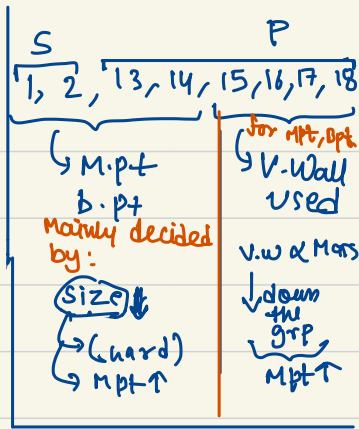 S P
1, 2, 13, 14, 15, 16, 17, 18
↳ M.pt
b.pt
Mainly decided
by:
size ⇓
→ (hard)
↳ Mpt ↑
for Mpt, Bpt
↳ V.Wall
used
V.W ∝ Mass
↓ down
the
grp
Mpt ↑